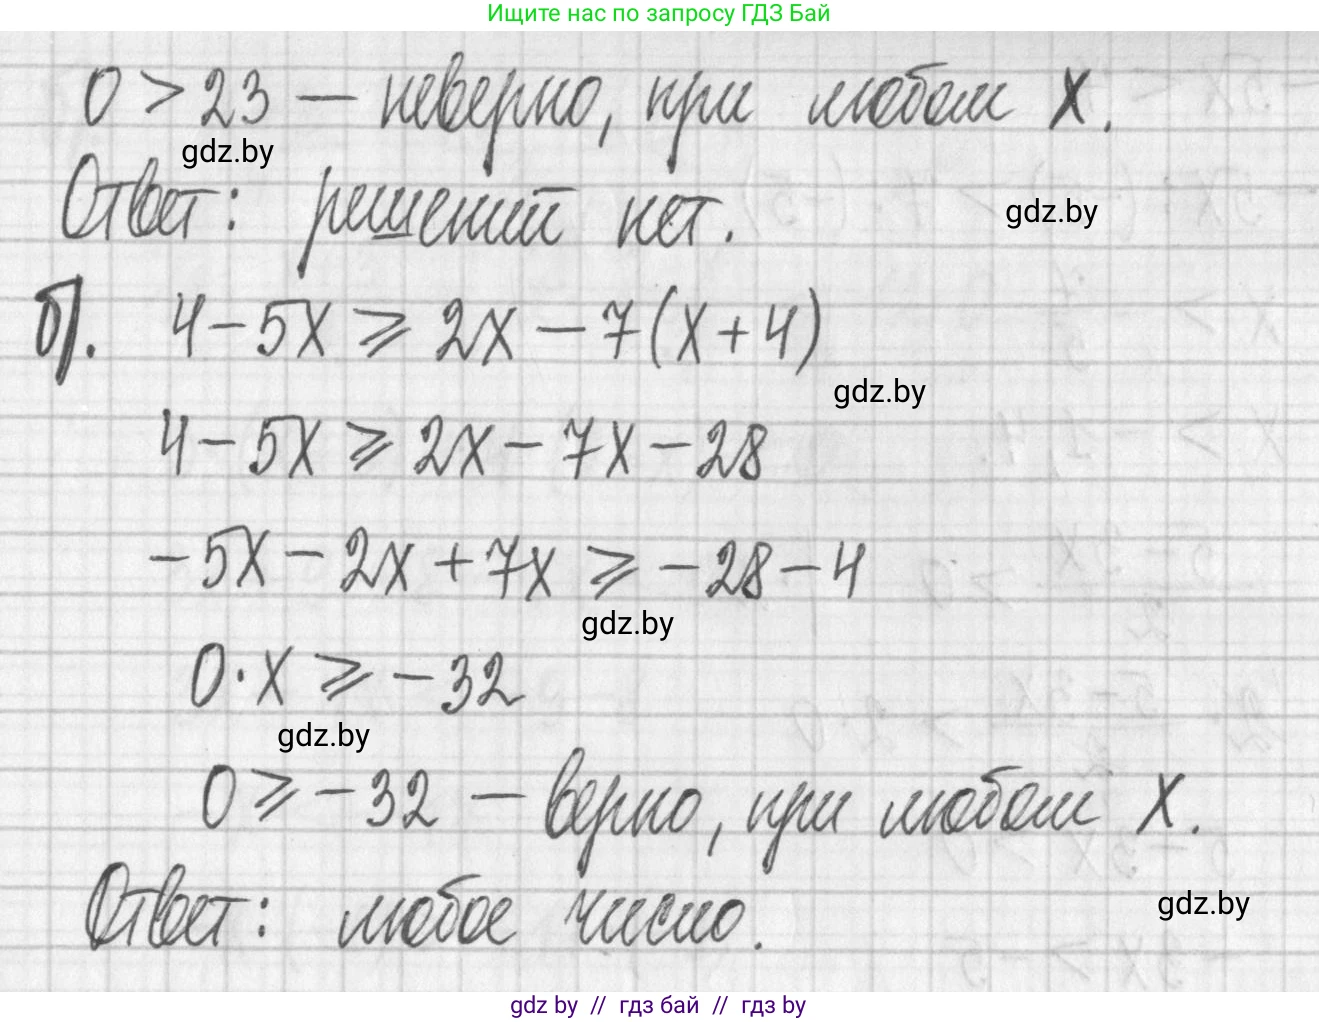 Ищите нас по запросу ГДЗ Бай
0 > 23 — неверно, при любом x.
gdz.by
Ответ: решений нет.
gdz.by
б). 4 - 5x ⩾ 2x - 7(x + 4)
gdz.by
4 - 5x ⩾ 2x - 7x - 28
-5x - 2x + 7x ⩾ -28 - 4
gdz.by
0 · x ⩾ -32
gdz.by
0 ⩾ -32 — верно, при любом x.
Ответ: любое число.
gdz.by
gdz by // гдз бай // гдз by